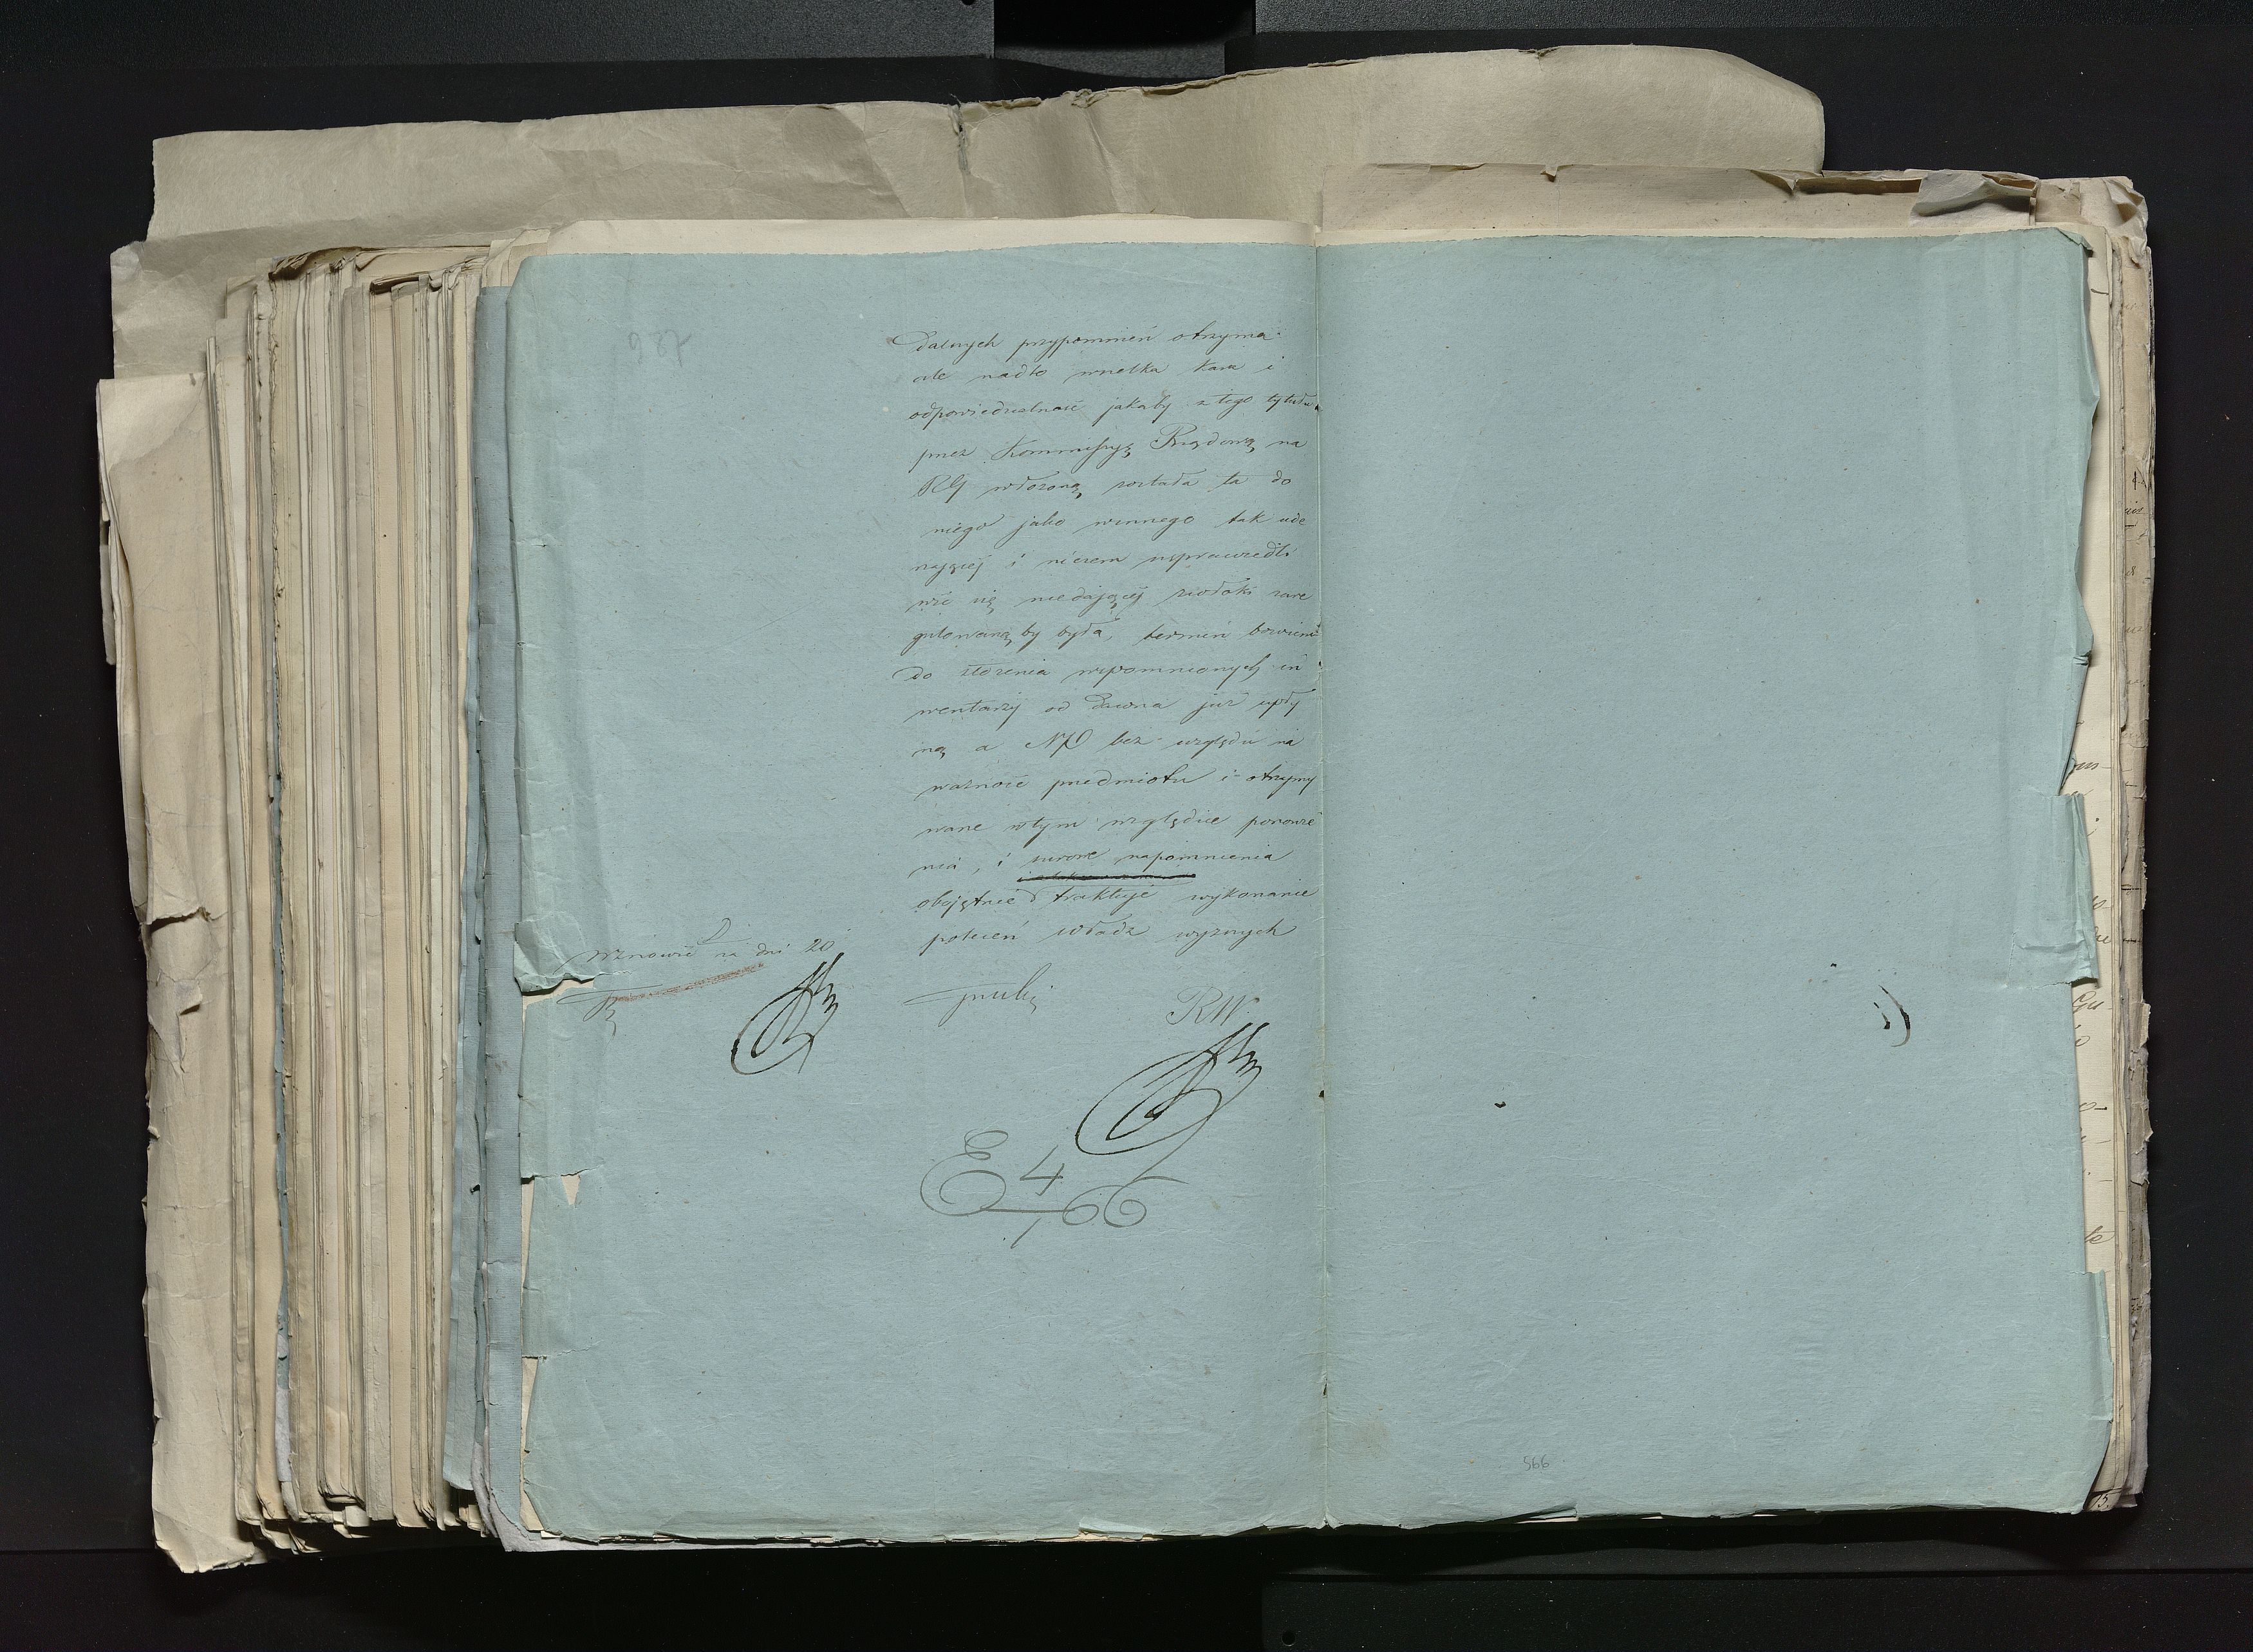 dalszych przypomnień otrzyma
ale nadto wszelka kara i
odpowiedzialność jakaby z tego tytułu
przez Kommissyą Rządową na
RG włożoną została ta do
niego jako winnego tak ude
rzającej i niczem usprawiedli
wić się niedającej zwłoki zare
gulowaną by była, termin bowiem
do złożenia wspomnionych in
wentarzy od dawna już upły
nął a NP bez względu na
ważność przedmiotu i otrzymy
wane w tym względzie ponowie
nia, i surowe napomnienia
obojętnie traktuje wykonanie
poleceń władz wyższych
Wznowić na dni 20
RW
E 4
1 66
566